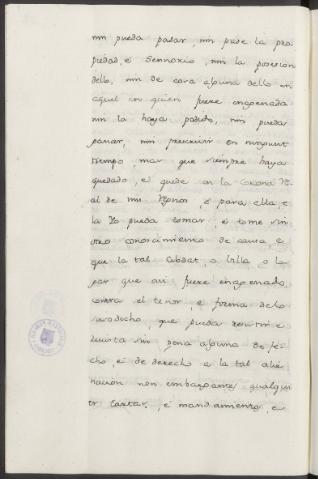 nin pueda pasar, nin pase la pro
piedad, e Sennorio, nin la posesion
dello, nin de cosa alguna dello en
aquel en quien fuere enagenada
nin la haya podido, nin pueda
ganar, nin prescrivir en ningunt
tiempo, mas que siempre haya
quedado, e quede en la Corona Re
al de mis Regnos e para ella e
la Yo pueda tomar, e tome sin
otro conoscimiento de causa, e
que la tal Cibdat o Villa o Lo
gar que asi fuere enagenado
contra el tenor, e forma de lo
susodicho, que pueda resistir e
resista sin pena alguna de fe
cho, e de derecho a la tal alie
nacion non embargante qualqui
er Cartas, e mandamientos, e